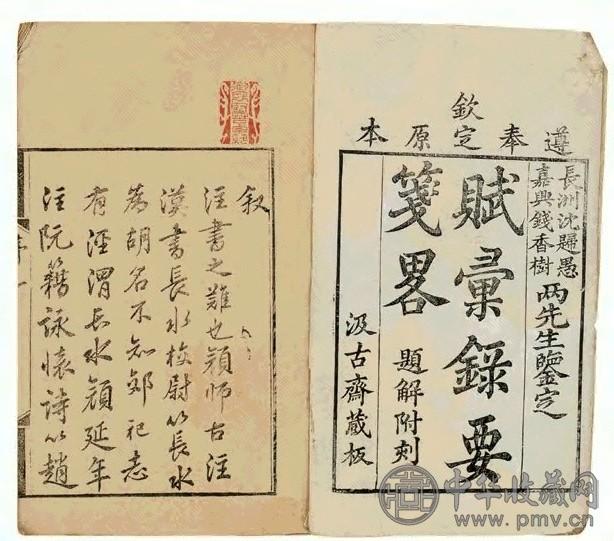 遵奉欽定原本
長洲沈歸愚
嘉興錢香樹
兩先生鑒定
賦彙錄要
箋畧
題解附刻
汲古齋藏板
叙
注書之難也顏師古注
漢書長水校尉以長水
為胡名不知郊祀志
有涇渭長水顏延年
注阮籍詠懷詩以趙
中华收藏网
www.pmv.cn